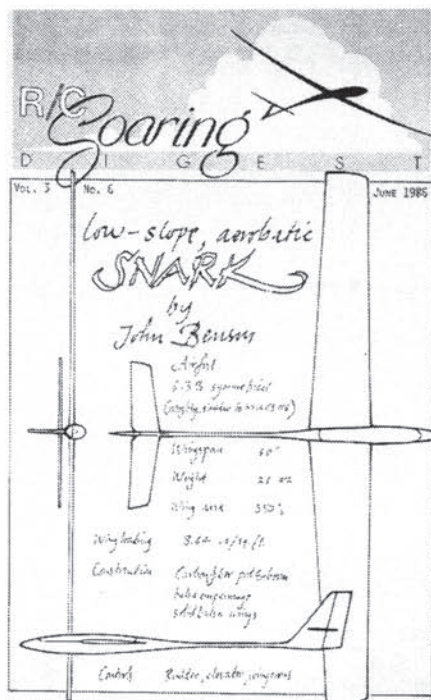 R/C Soaring
DIGEST
VOL. 3 No. 6 JUNE 1986
low-slope, aerobatic
SNARK
by
John Benson
Airfoil
6.3% symmetrical
Wingspan 50"
Weight 21 oz
Wing area
Wing loading 8.64
Construction Carbon fiber
balsa empennage
solid balsa wings
Controls Rudder, elevator, wingerons